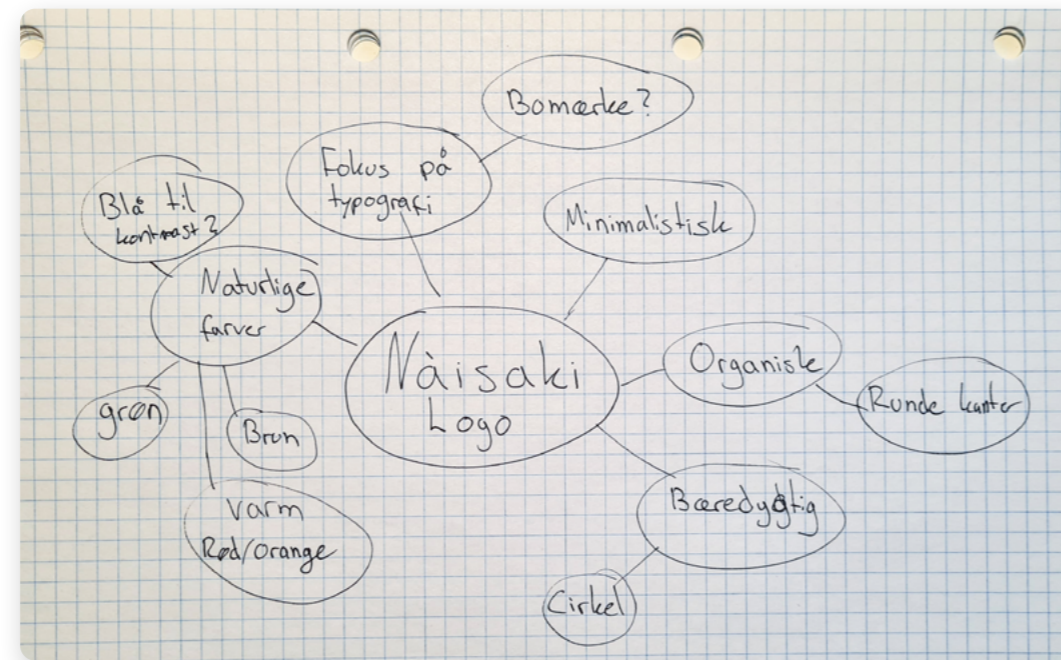 Bomærke?
Fokus på
typografi
Minimalistisk
Blå til
kontrast?
Naturlige
farver
Nàisaki
Logo
Organisk
Runde kanter
grøn
Brun
Varm
Rød/Orange
Bæredygtig
Cirkel